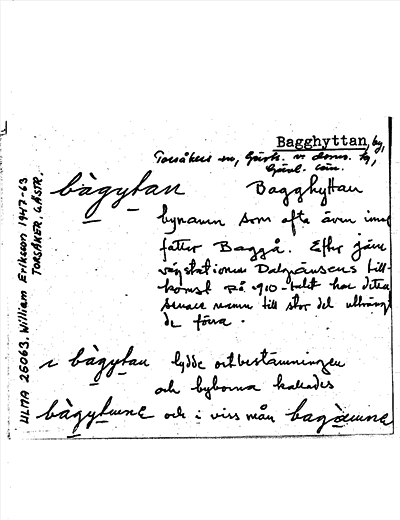 Bagghyttan, by,
Torsåkers sn, Gästr. v. doms. tg,
Gävl. län.
bàgytan Bagghyttan
bynamn som ofta även inne
fattar Baggå. Efter järn
vägstationen Dalgränsens till-
komst på 1910-talet har detta
senare namn till stor del utträngt
de förra.
i bàgytan lydde ortbestämningen
och byborna kallades
bàgytmnɛ och i viss mån bagòmnɛ
ULMA 26063. William Eriksson 1947-63
TORSÅKER, GÄSTR.